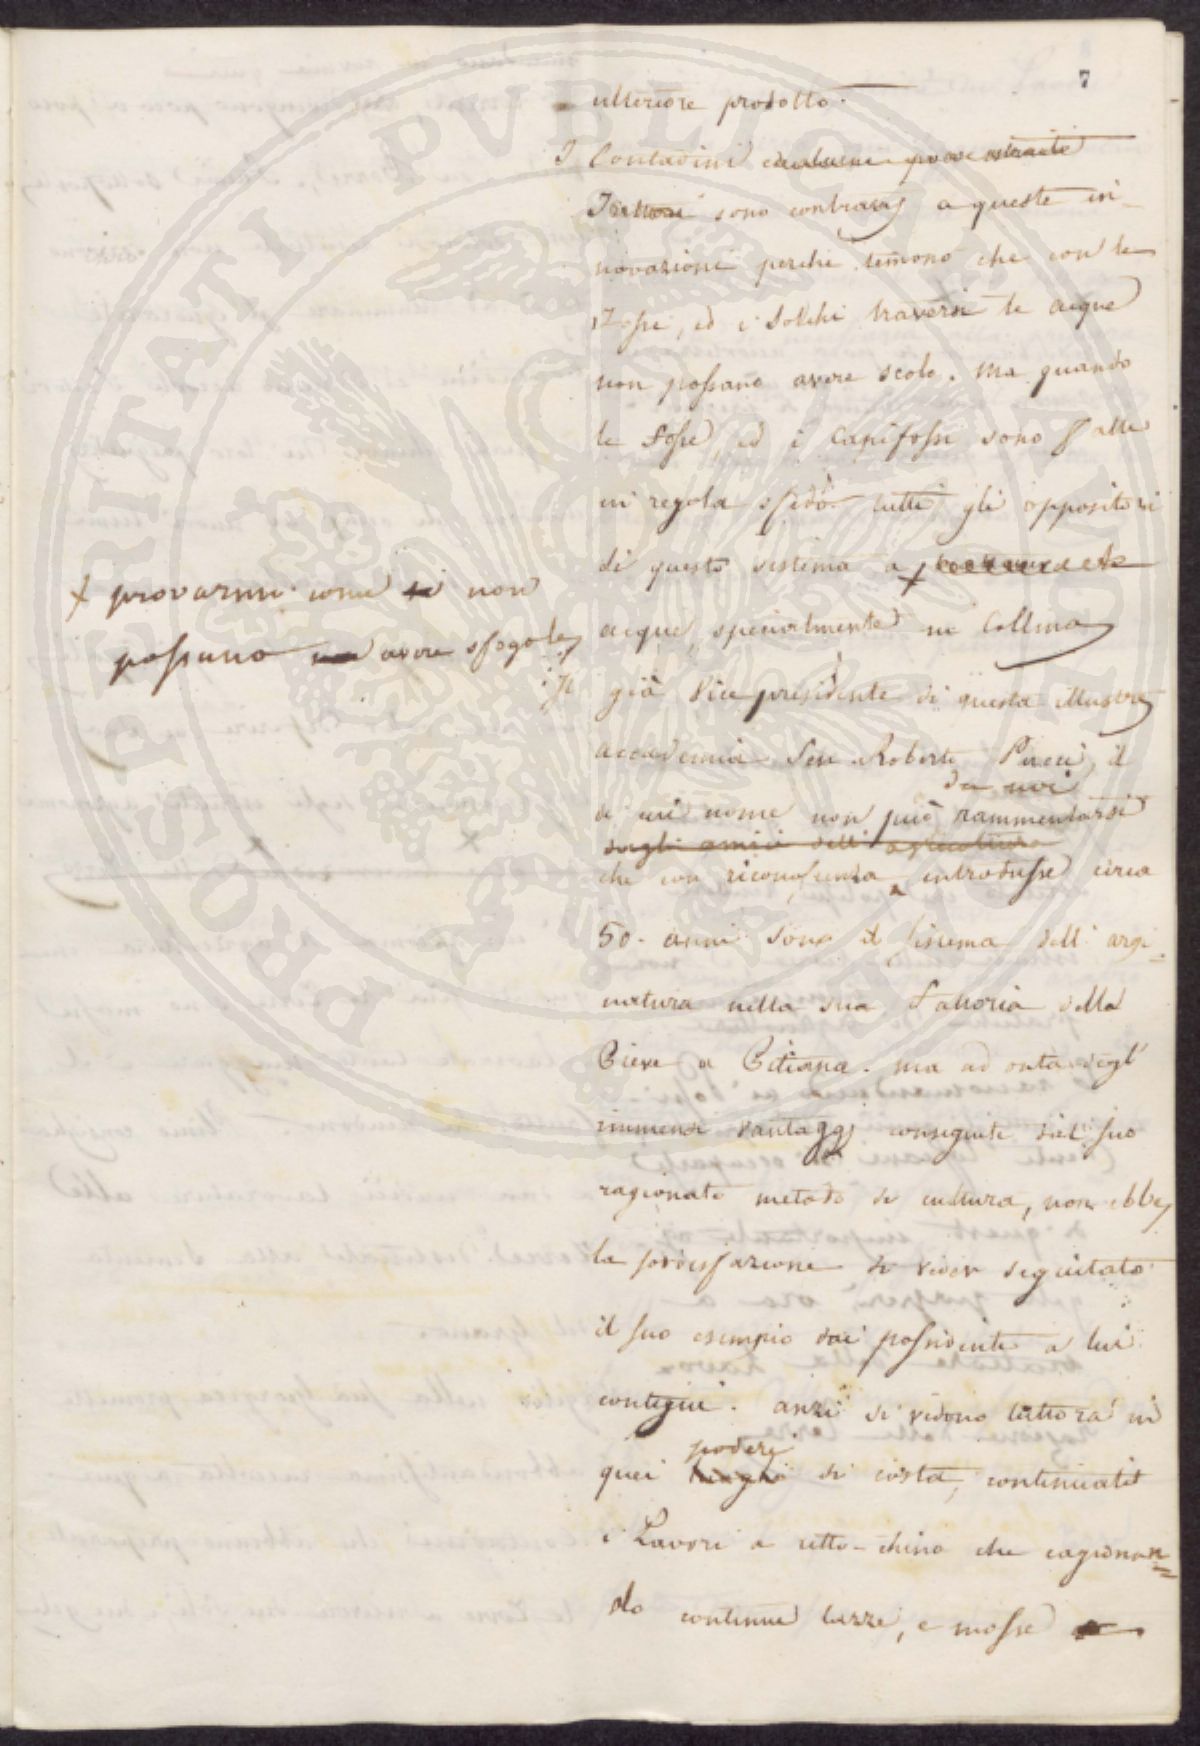 7
ulteriore prodotto.
I Contadini
sono contrarj a queste in-
novazioni perchè temono che con le
Fosse, ed i Solchi traversi le acque
non possano avere scolo. Ma quando
le Fosse, ed i Capifossi sono fatte
in regola sfido tutti gli oppositori
di questo sistema a
+ provarmi come si non
possano avere sfogo le
acque, specialmente in Collina
Il già Vice presidente di questa illustre
accademia Sen. Roberto Pucci, il
da noi
di cui nome non può rammentarsi
dagli amici dell'agricoltura
che con riconoscenza introdusse circa
50. anni sono il sistema dell' argi-
natura nella sua Fattoria della
Pieve a Pitiana. Ma ad onta degl'
immensi vantaggj conseguiti dal suo
ragionato metodo di cultura, non ebbe
la sodisfazione di veder seguitato
il suo esempio dai possidenti a lui
contigui. Anzi si vedono tuttora in
poderi
quei luoghi di costa, continuati
i Lavori a ritto-chino che cagionan=
do continue lazze, e mosse
PROSPERITATI PVBLICAE AVGENDAE